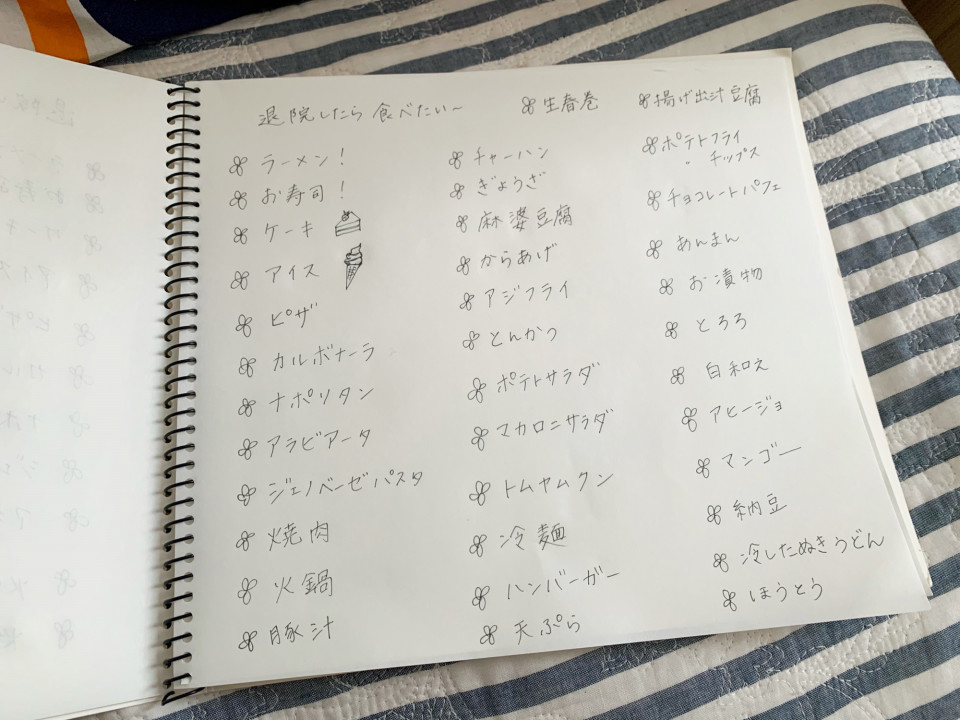 退院したら食べたい〜
ラーメン!
お寿司!
ケーキ
アイス
ピザ
カルボナーラ
ナポリタン
アラビアータ
ジェノベーゼパスタ
焼肉
火鍋
豚汁
生春巻
チャーハン
ぎょうざ
麻婆豆腐
からあげ
アジフライ
とんかつ
ポテトサラダ
マカロニサラダ
トムヤムクン
冷麺
ハンバーガー
天ぷら
揚げ出汁豆腐
ポテトフライ
〃 チップス
チョコレートパフェ
あんまん
お漬物
とろろ
白和え
アヒージョ
マンゴー
納豆
冷したぬきうどん
ほうとう